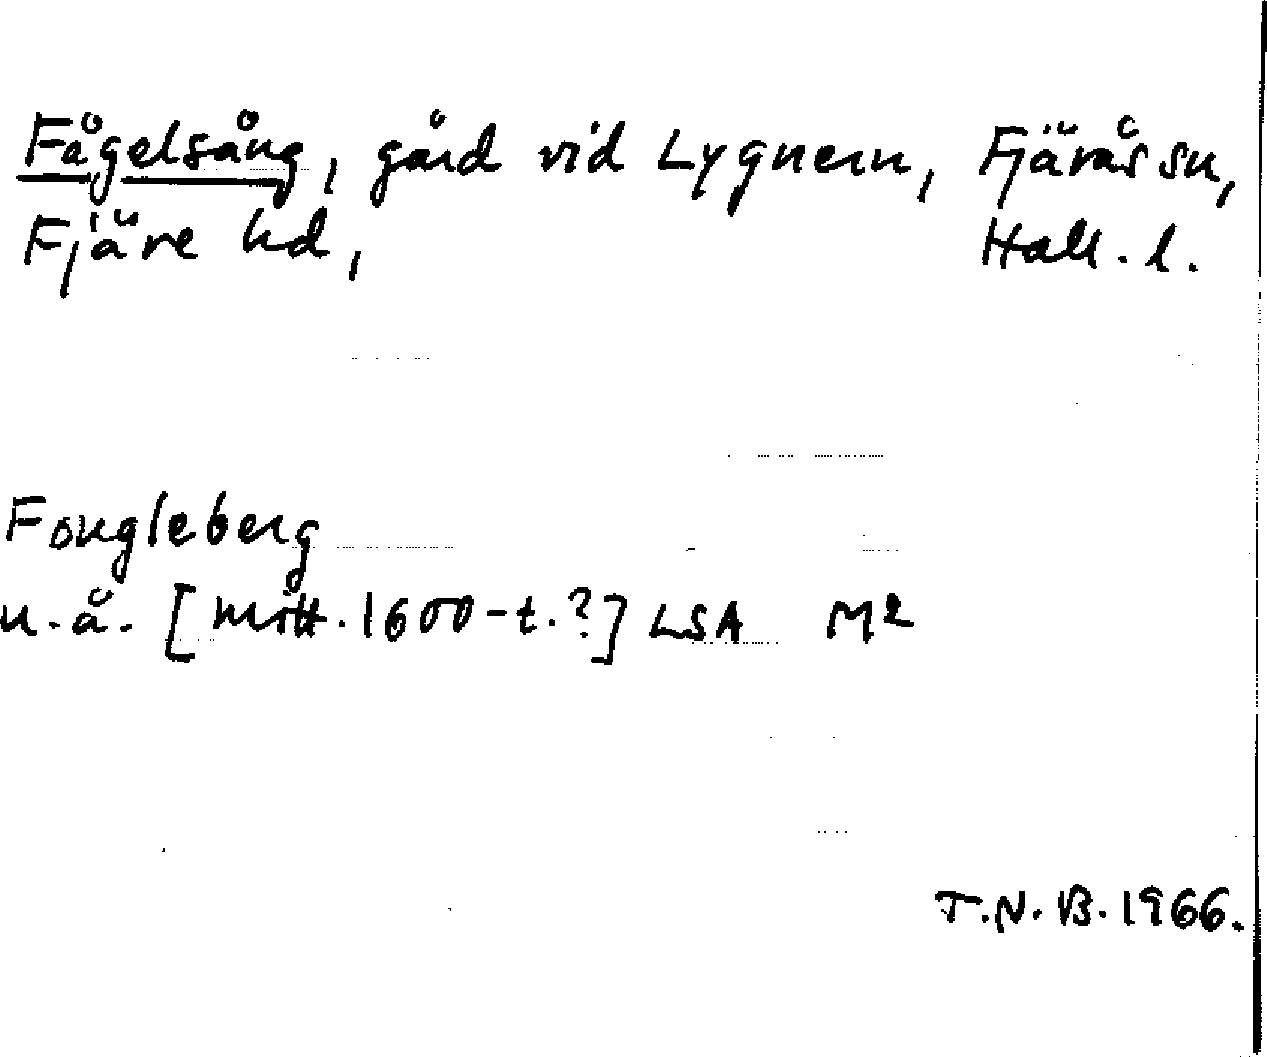 Fågelsång, gård vid Lygnern, Fjärås sn,
Fjäre hd, Hall. l.
Fougleberg
u.å. [mitt. 1600-t.?] LSA M2
T.N.B. 1966.